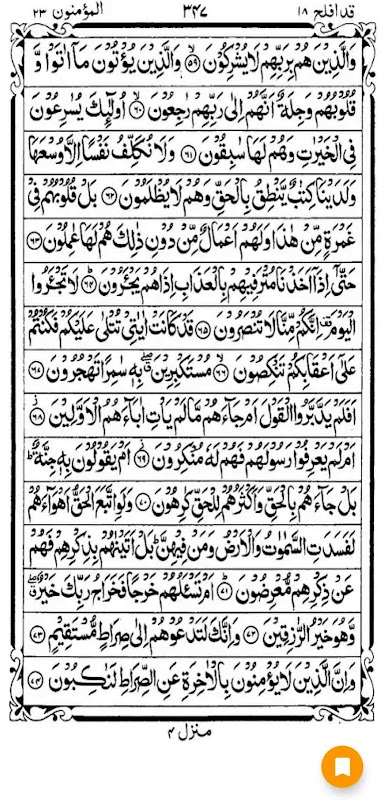 قدافلح ۱۸
۳۴۷
المؤمنون ۲۳
وَالَّذِيْنَ هُمْ بِرَبِّهِمْ لَا يُشْرِكُوْنَ ۙ﴿۵۹﴾ وَالَّذِيْنَ يُؤْتُوْنَ مَآ اٰتَوْا وَّ
قُلُوْبُهُمْ وَجِلَةٌ اَنَّهُمْ اِلٰى رَبِّهِمْ رٰجِعُوْنَ ۙ﴿۶۰﴾ اُولٰٓئِكَ يُسٰرِعُوْنَ
فِى الْخَيْرٰتِ وَهُمْ لَهَا سٰبِقُوْنَ ﴿۶۱﴾ وَلَا نُكَلِّفُ نَفْسًا اِلَّا وُسْعَهَا
وَلَدَيْنَا كِتٰبٌ يَّنْطِقُ بِالْحَقِّ وَهُمْ لَا يُظْلَمُوْنَ ﴿۶۲﴾ بَلْ قُلُوْبُهُمْ فِىْ
غَمْرَةٍ مِّنْ هٰذَا وَلَهُمْ اَعْمَالٌ مِّنْ دُوْنِ ذٰلِكَ هُمْ لَهَا عٰمِلُوْنَ ﴿۶۳﴾
حَتّٰىٓ اِذَآ اَخَذْنَا مُتْرَفِيْهِمْ بِالْعَذَابِ اِذَا هُمْ يَجْئَرُوْنَ ؕ﴿۶۴﴾ لَا تَجْئَرُوا
الْيَوْمَ ۟ اِنَّكُمْ مِّنَّا لَا تُنْصَرُوْنَ ﴿۶۵﴾ قَدْ كَانَتْ اٰيٰتِىْ تُتْلٰى عَلَيْكُمْ فَكُنْتُمْ
عَلٰٓى اَعْقَابِكُمْ تَنْكِصُوْنَ ۙ﴿۶۶﴾ مُسْتَكْبِرِيْنَ ۖ بِهٖ سٰمِرًا تَهْجُرُوْنَ ﴿۶۷﴾
اَفَلَمْ يَدَّبَّرُوا الْقَوْلَ اَمْ جَآءَهُمْ مَّا لَمْ يَاْتِ اٰبَآءَهُمُ الْاَوَّلِيْنَ ۫﴿۶۸﴾
اَمْ لَمْ يَعْرِفُوْا رَسُوْلَهُمْ فَهُمْ لَهٗ مُنْكِرُوْنَ ۫﴿۶۹﴾ اَمْ يَقُوْلُوْنَ بِهٖ جِنَّةٌ ؕ
بَلْ جَآءَهُمْ بِالْحَقِّ وَاَكْثَرُهُمْ لِلْحَقِّ كٰرِهُوْنَ ﴿۷۰﴾ وَلَوِ اتَّبَعَ الْحَقُّ اَهْوَآءَهُمْ
لَفَسَدَتِ السَّمٰوٰتُ وَالْاَرْضُ وَمَنْ فِيْهِنَّ ؕ بَلْ اَتَيْنٰهُمْ بِذِكْرِهِمْ فَهُمْ
عَنْ ذِكْرِهِمْ مُّعْرِضُوْنَ ؕ﴿۷۱﴾ اَمْ تَسْـَٔلُهُمْ خَرْجًا فَخَرَاجُ رَبِّكَ خَيْرٌ ۖ
وَّهُوَ خَيْرُ الرّٰزِقِيْنَ ﴿۷۲﴾ وَاِنَّكَ لَتَدْعُوْهُمْ اِلٰى صِرَاطٍ مُّسْتَقِيْمٍ ﴿۷۳﴾
وَاِنَّ الَّذِيْنَ لَا يُؤْمِنُوْنَ بِالْاٰخِرَةِ عَنِ الصِّرَاطِ لَنٰكِبُوْنَ ﴿۷۴﴾
منزل ۴